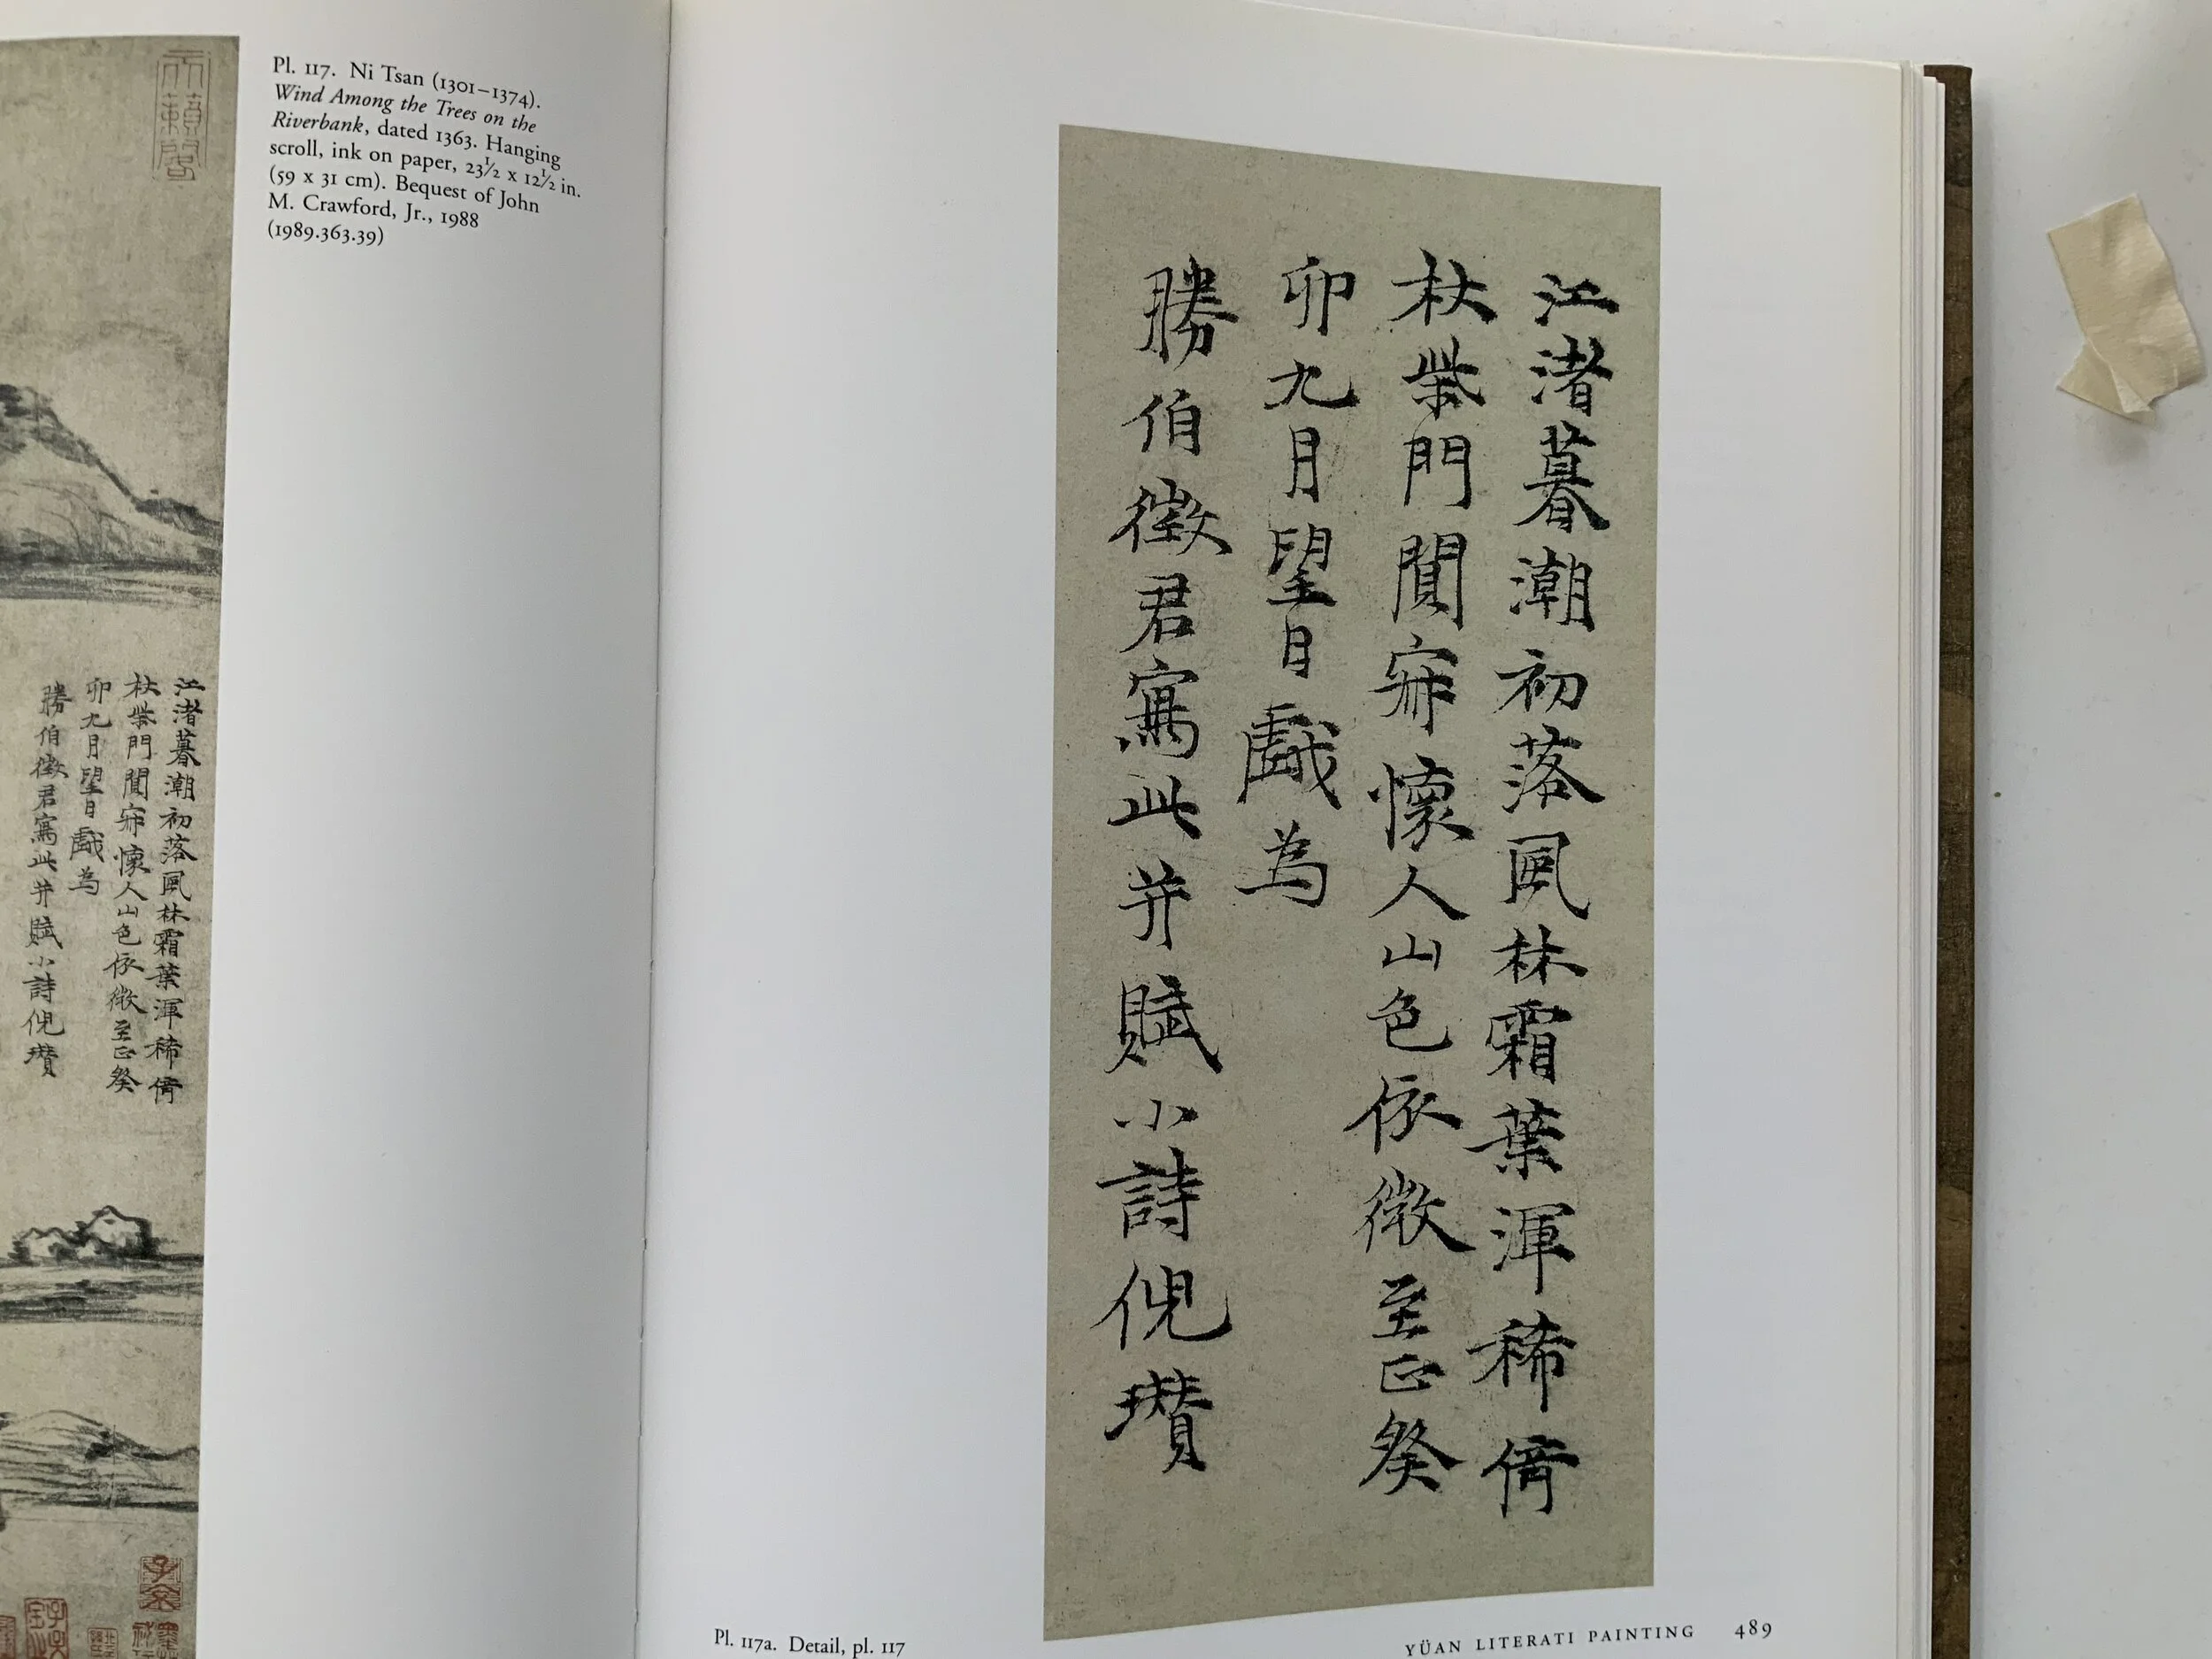 Pl. 117. Ni Tsan (1301–1374).
Wind Among the Trees on the
Riverbank, dated 1363. Hanging
scroll, ink on paper, 23½ x 12½ in.
(59 x 31 cm). Bequest of John
M. Crawford, Jr., 1988
(1989.363.39)
江渚暮潮初落風林霜葉渾稀倚
杖柴門閴寂懷人山色依微至正癸
卯九月望日戲為
勝伯徵君寫此并賦小詩倪瓚
江渚暮潮初落風林霜葉渾稀倚
杖柴門閴寂懷人山色依微至正癸
卯九月望日戲為
勝伯徵君寫此并賦小詩倪瓚
Pl. 117a. Detail, pl. 117
YÜAN LITERATI PAINTING 489